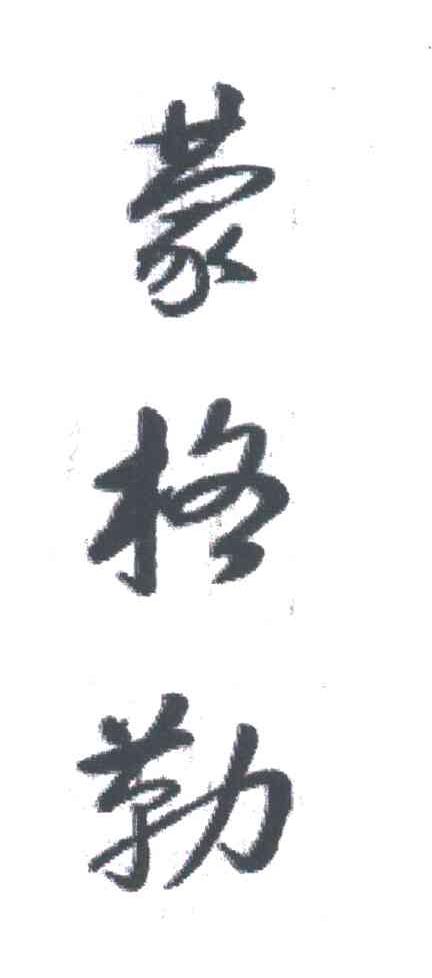 蒙格勒